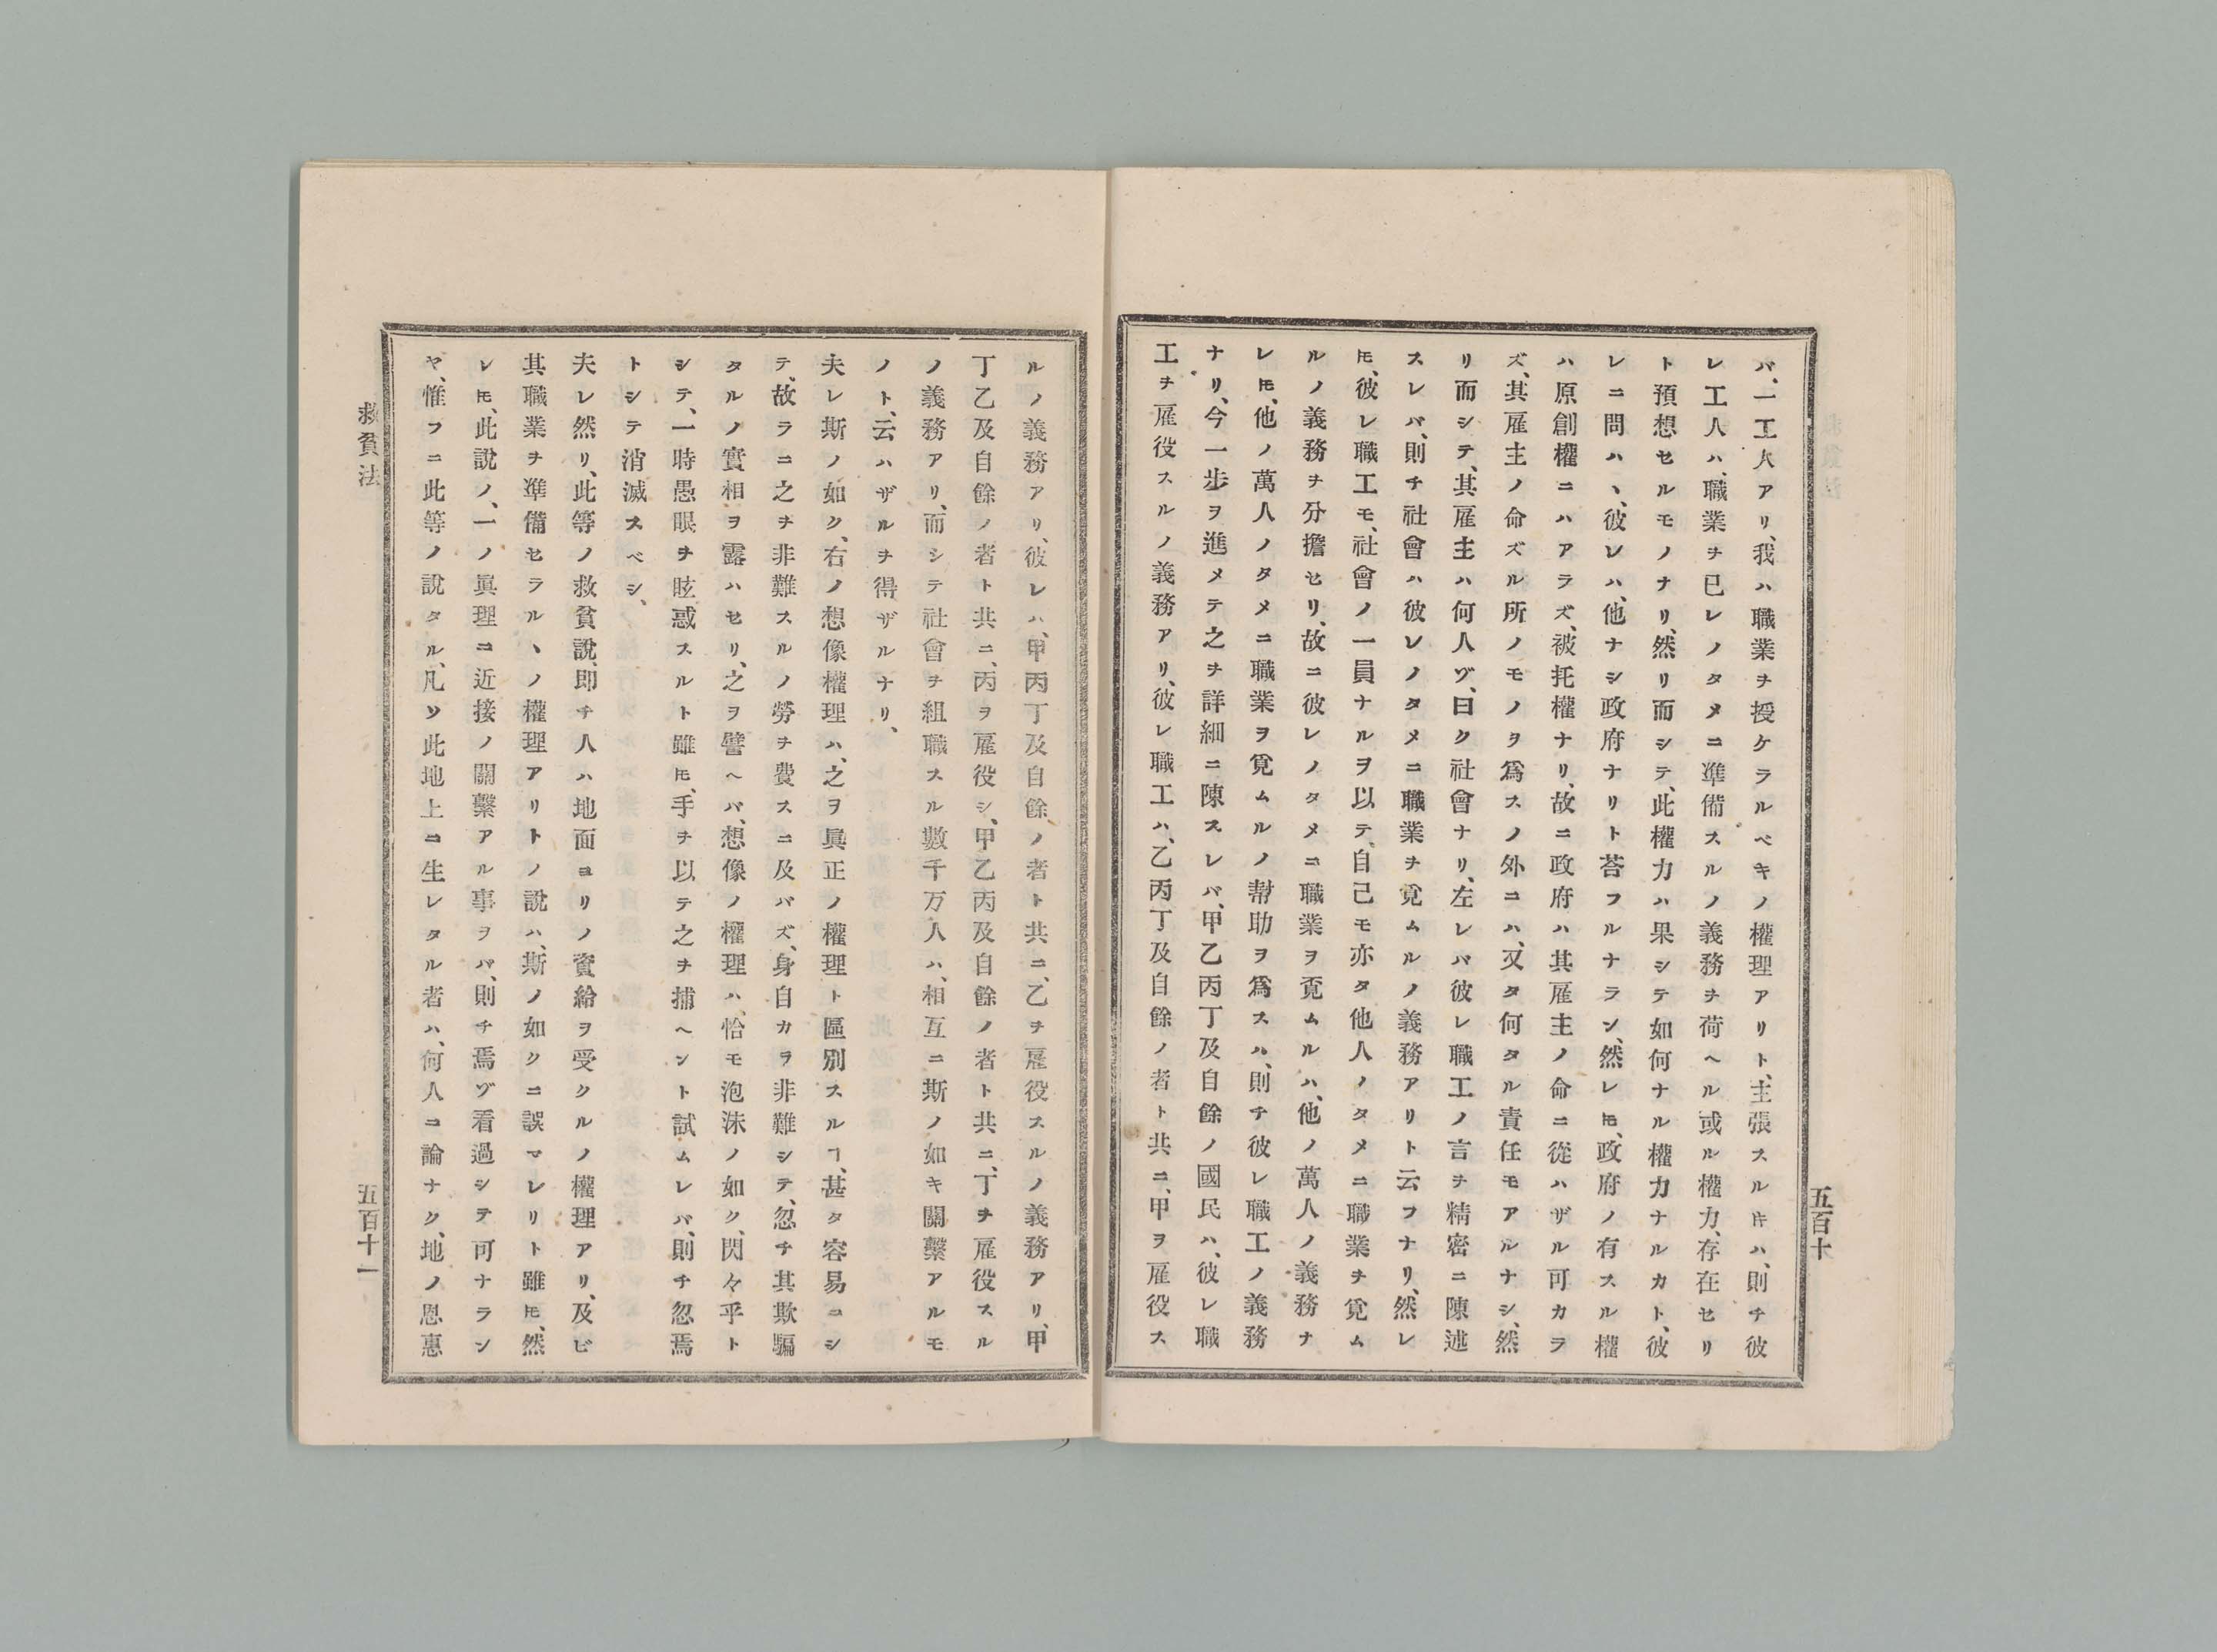 五百十
バ、一工人アリ、我ハ職業ヲ授ケラルベキノ權理アリト、主張スルキハ、則チ彼
レ工人ハ、職業ヲ已レノタメニ準備スルノ義務ヲ荷ヘル或ル權力、存在セリ
ト預想セルモノナリ、然リ而シテ、此權力ハ果シテ如何ナル權力ナルカト、彼
レニ問ハヽ、彼レハ、他ナシ政府ナリト荅フルナラン、然レ𪜈、政府ノ有スル權
ハ原創權ニハアラズ、被托權ナリ、故ニ政府ハ其雇主ノ命ニ從ハザル可カラ
ズ、其雇主ノ命ズル所ノモノヲ爲スノ外ニハ、又タ何タル責任モアルナシ、然
リ而シテ、其雇主ハ何人ゾ、曰ク社會ナリ、左レバ彼レ職工ノ言ヲ精密ニ陳述
スレバ、則チ社會ハ彼レノタメニ職業ヲ覓ムルノ義務アリト云フナリ、然レ
𪜈、彼レ職工モ、社會ノ一員ナルヲ以テ、自己モ亦タ他人ノタメニ職業ヲ覓ム
ルノ義務ヲ分擔セリ、故ニ彼レノタメニ職業ヲ覓ムルハ、他ノ萬人ノ義務ナ
レ𪜈、他ノ萬人ノタメニ職業ヲ覓ムルノ幇助ヲ爲スハ、則チ彼レ職工ノ義務
ナリ、今一歩ヲ進メテ之ヲ詳細ニ陳スレバ、甲乙丙丁及自餘ノ國民ハ、彼レ職
工ヲ雇役スルノ義務アリ、彼レ職工ハ、乙丙丁及自餘ノ者ト共ニ、甲ヲ雇役ス
ルノ義務アリ、彼レハ、甲丙丁及自餘ノ者ト共ニ、乙ヲ雇役スルノ義務アリ、甲
丁乙及自餘ノ者ト共ニ、丙ヲ雇役シ、甲乙丙及自餘ノ者ト共ニ、丁ヲ雇役スル
ノ義務アリ、而シテ社會ヲ組職スル數千万人ハ、相互ニ斯ノ如キ關繫アルモ
ノト、云ハザルヲ得ザルナリ、
夫レ斯ノ如ク、右ノ想像權理ハ、之ヲ眞正ノ權理ト區別スルヿ、甚タ容易ニシ
テ、故ラニ之ヲ非難スルノ勞ヲ費スニ及バズ、身自カラ非難シテ、忽チ其欺騙
タルノ實相ヲ露ハセリ、之ヲ譬ヘバ、想像ノ權理ハ、恰モ泡沫ノ如ク、閃々乎ト
シテ、一時愚眼ヲ眩惑スルト雖𪜈、手ヲ以テ之ヲ捕ヘント試ムレバ、則チ忽焉
トシテ消滅スベシ、
夫レ然リ、此等ノ救貧說、即チ人ハ地面ヨリノ資給ヲ受クルノ權理アリ、及ビ
其職業ヲ準備セラルヽノ權理アリトノ說ハ、斯ノ如クニ誤マレリト雖𪜈、然
レ𪜈、此說ノ、一ノ眞理ニ近接ノ關繫アル事ヲバ、則チ焉ゾ看過シテ可ナラン
ヤ、惟フニ此等ノ說タル、凡ソ此地上ニ生レタル者ハ、何人ニ論ナク、地ノ恩惠
救貧法
五百十一